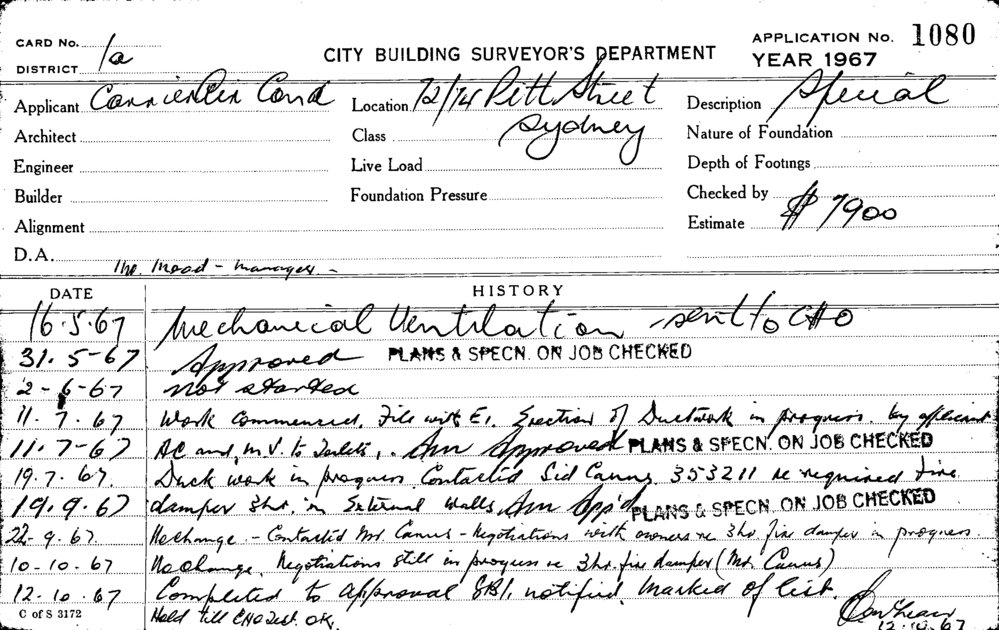 CARD No.
1a
DISTRICT
CITY BUILDING SURVEYOR'S DEPARTMENT
APPLICATION No. 1080
YEAR 1967
Applicant Carrier Air Cond Location 72/74 Pitt Street Description Special
Architect Class Sydney Nature of Foundation
Engineer Live Load Depth of Footings
Builder Foundation Pressure Checked by
Alignment Estimate $ 7900
D.A.
manager -
DATE HISTORY
16.5.67 Mechanical Ventilation - sent to CHO
31.5-67 Approved PLANS & SPECN. ON JOB CHECKED
2-6-67 not started
11.7.67 Work commenced. File with E1. Erection of Ductwork in progress by applicant
11.7-67 AC and M.V. to Toilets, Approved PLANS & SPECN. ON JOB CHECKED
19.7.67. Duck work in progress Contacted Sid 353211 re required fire
19.9.67 damper 3hr. in External walls App'd PLANS & SPECN. ON JOB CHECKED
22-9.67. No change - Contacted Mr. - Negotiations with owners re 3hr fire damper in progress.
10-10.67 No change. Negotiations still in progress re 3hr. fire damper (Mr. )
12.10.67 Completed to approval notified. Marked of list.
C of S 3172 Held till CHO OK.
12.10.67